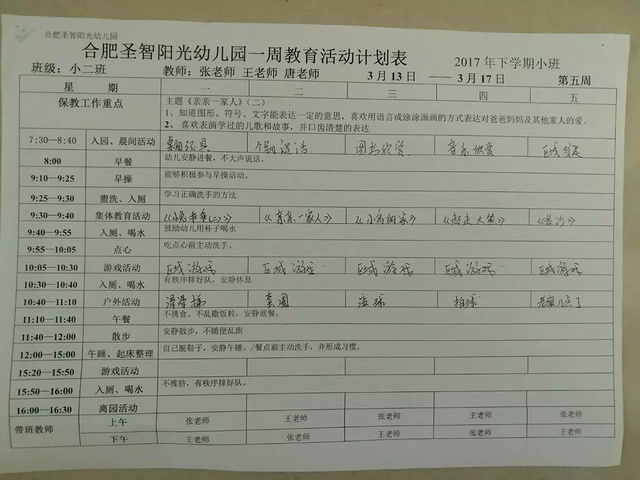 合肥圣智阳光幼儿园
合肥圣智阳光幼儿园一周教育活动计划表
班级：小二班 教师：张老师 王老师 唐老师 3 月 13 日 ——3 月 17 日 2017 年下学期小班 第五周
星 期 一 二 三 四 五
保教工作重点 主题《亲亲一家人》（二）
1、知道图形、符号、文字能表达一定的意思，喜欢用语言或涂涂画画的方式表达对爸爸妈妈及其他家人的爱。
2、喜欢表演学过的儿歌和故事，并口齿清楚的表达
7:30—8:40 入园、晨间活动 桌面玩具 个别谈话 图书欣赏 音乐欣赏 区域
8:00 早餐 幼儿安静进餐，不大声说话。
9:10—9:25 早操 能够积极参与早操活动。
9:25—9:30 盥洗、入厕 学习正确洗手的方法
9:30—9:40 集体教育活动 《亲亲一家人》
9:40—9:55 入厕、喝水 鼓励幼儿用杯子喝水
9:55—10:05 点心 吃点心前主动洗手。
10:05—10:30 游戏活动 区域游戏 区域游戏 区域游戏 区域游戏 区域游戏
10:30—10:40 入厕、喝水 有秩序排好队，安静休息
10:40—11:10 户外活动 滑滑梯 老狼几点了
11:10—11:40 午餐 不挑食、不乱撒饭粒，安静就餐。
11:40—12:00 散步 安静散步，不随便乱跑
12:00—15:00 午睡、起床整理 自己脱鞋子，安静午睡。/餐点前主动洗手，并形成习惯。
15:20—15:50 游戏活动
15:50—16:00 入厕、喝水 不推挤，有秩序排好队。
16:00—16:30 离园活动
带班教师 上午 张老师 王老师 张老师 王老师 张老师
下午 王老师 张老师 王老师 张老师 王老师